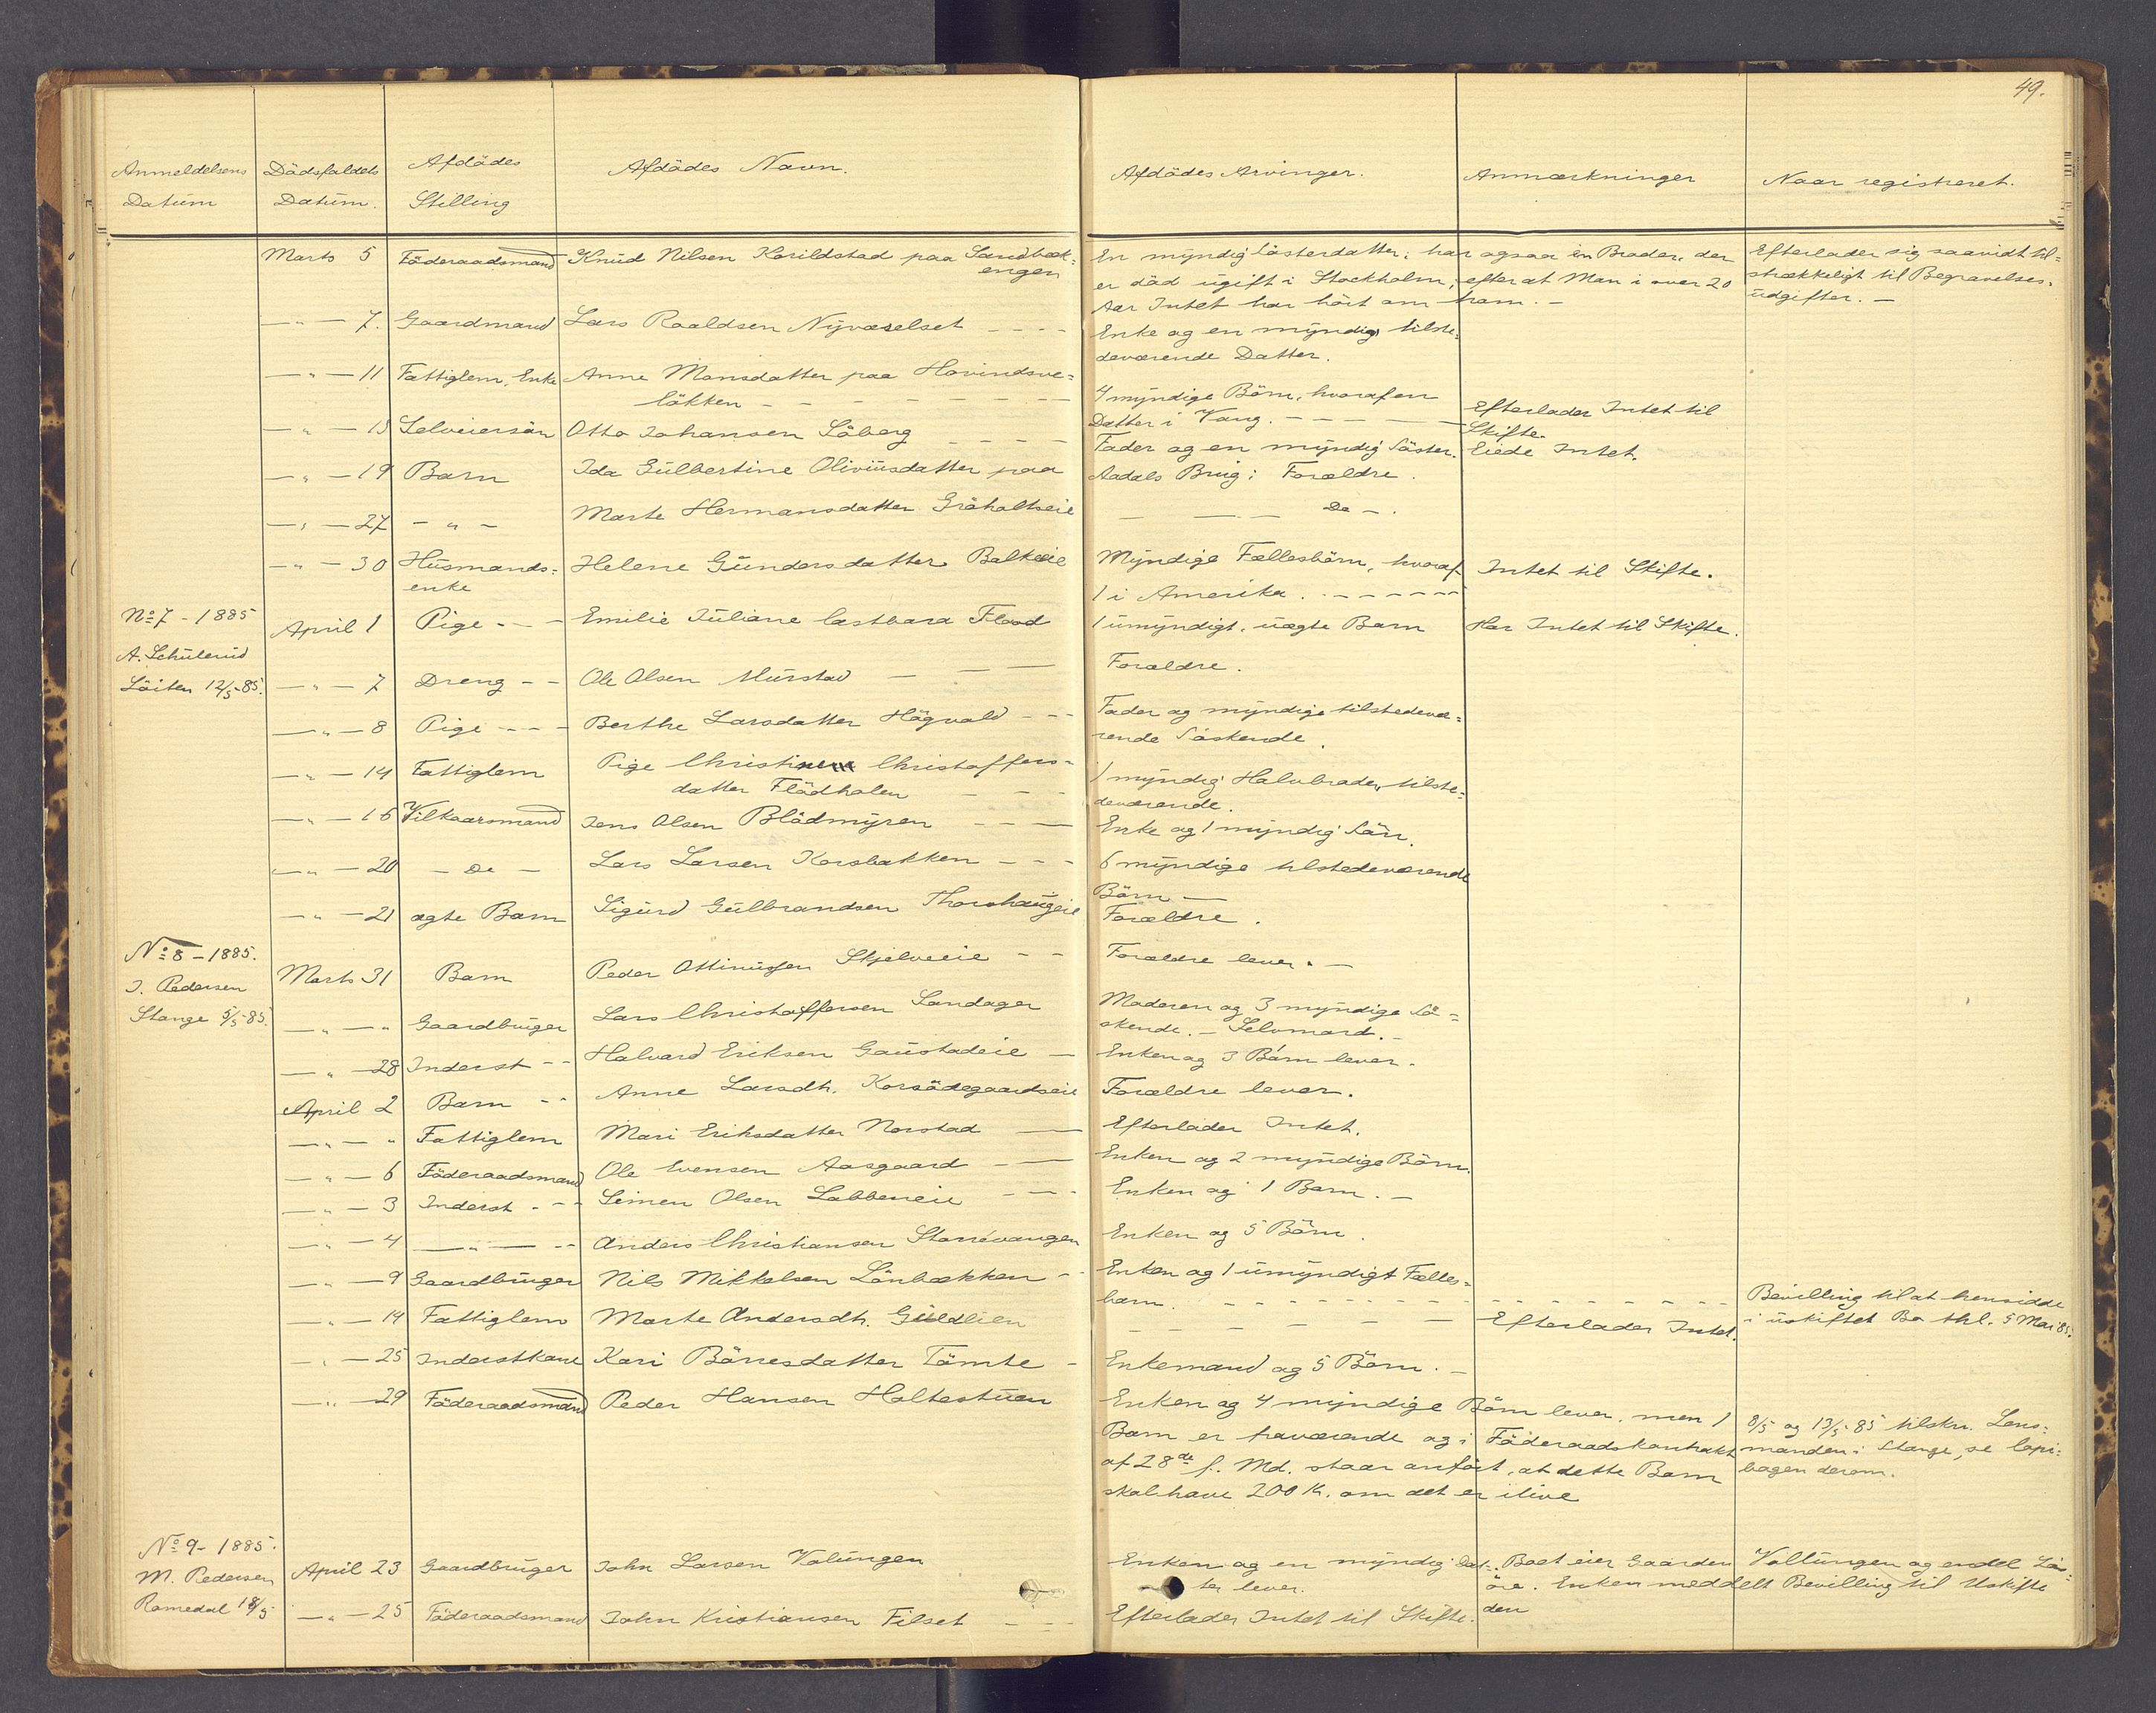 49.
Anmeldelsens Datum | Dödsfaldets Datum. | Afdödes Stilling | Afdödes Navn. | Afdödes Arvinger. | Anmærkninger | Naar registreret.
Marts 5 Föderaadsmand Knud Nilsen Korildstad paa Sandbæk= engen | En myndig Sösterdatter; har ogsaa en Broder, der | Efterlader sig saavidt til=
er död ugift i Stockholm, efter at Man i over 20 | strækkeligt til Begravelses-
Aar Intet har hört om ham. — | udgifter. —
— " — 7. Gaardmand Lars Roaldsen Nyværelset | Enke og en myndig tilste=
deværende Datter.
— " — 11 Fattiglem, Enke Anne Monsdatter paa Hovindsve=
lökken | 4 myndige Börn, hvoraf en
Datter i Vang. | Efterlader Intet til Skifte.
— " — 15 Selveiersön Otto Johansen Söberg | Fader og en myndig Söster. | Eiede Intet.
— " — 19 Barn Ida Gulbertine Oliviusdatter paa | Aadals Brug: Forældre.
— " — 27 — " — Marte Hermansdatter Gröholtseie | — Do —.
— " — 30 Husmands= enke Helene Gundersdatter Balkeeie | Myndige Fællesbörn, hvoraf | Intet til Skifte.
1 i Amerika.
No 7 - 1885
A. Schulerud
Löiten 12/5-85.
April 1 Pige Emilie Juliane Castbara Flood | 1 umyndigt, uægte Barn | Har Intet til Skifte.
— " — 7 Dreng Ole Olsen Murstad | Forældre.
— " — 8 Pige Berthe Larsdatter Högvold | Fader og myndige tilstedevæ=
rende Söskende.
— " — 14 Fattiglem Pige Christine Christoffers=
datter Flödholen | 1 myndig Halvbroder, tilste=
deværende.
— " — 16 Vilkaarsmand Jens Olsen Blödmyren | Enke og 1 myndig Sön.
— " — 20 — Do — Lars Larsen Korsbakken | 6 myndige tilstedeværende
Börn —
— " — 21 ægte Barn Sigurd Gulbrandsen Thorshaugeie | Forældre.
No 8 - 1885.
J. Pedersen
Stange 5/5-85.
Marts 31 Barn Peder Ottinussen Skjelveeie | Forældre lever. —
— " — " Gaardbruger Lars Christoffersen Sandager | Moderen og 3 myndige Sö=
skende. — Selvmord. —
— " — 28 Inderst Halvard Eriksen Gaustadeie | Enken og 3 Börn lever.
April 2 Barn Anne Larsdtr. Korsödegaardseie | Forældre lever.
— " — " Fattiglem Mari Eriksdatter Norstad | Efterlader Intet.
— " — 6 Föderaadsmand Ole Evensen Aasgaard | Enken og 2 myndige Börn.
— " — 3 Inderst Simen Olsen Labbereie | Enken og 1 Barn. —
— " — 4 — " — Anders Christiansen Storrévangen | Enken og 5 Börn.
— " — 9 Gaardbruger Nils Mikkelsen Lönbækken | Enken og 1 umyndigt Fælles=
barn. | Bevilling til at hensidde
i uskiftet Bo thl. 5 Mai 85.
— " — 14 Fattiglem Marte Andersdtr. Guldlien | Efterlader Intet.
— " — 25 Inderstkone Kari Börresdatter Tömte | Enkemand og 5 Börn. —
— " — 29 Föderaadsmand Peder Hansen Holtestuen | Enken og 4 myndige Börn lever, men 1 | 8/5 og 13/5-85 tilskr. Lens=
Barn er fraværende og i Föderaadskontrakt | manden i Stange, se Copi=
af 28de f. Md. staar anfört, at dette Barn | bogen derom.
skal have 200 Kr. om det er ilive
No 9 - 1885.
M. Pedersen
Romedal 18/5
April 23 Gaardbruger John Larsen Volungen | Enken og en myndig Dat=
ter lever. | Boet eier Gaarden Vollungen og endel Lö=
öre. Enken meddelt Bevilling til Uskifte
den
— " — 25 Föderaadsmand John Kristiansen Filset | Efterlader Intet til Skifte.